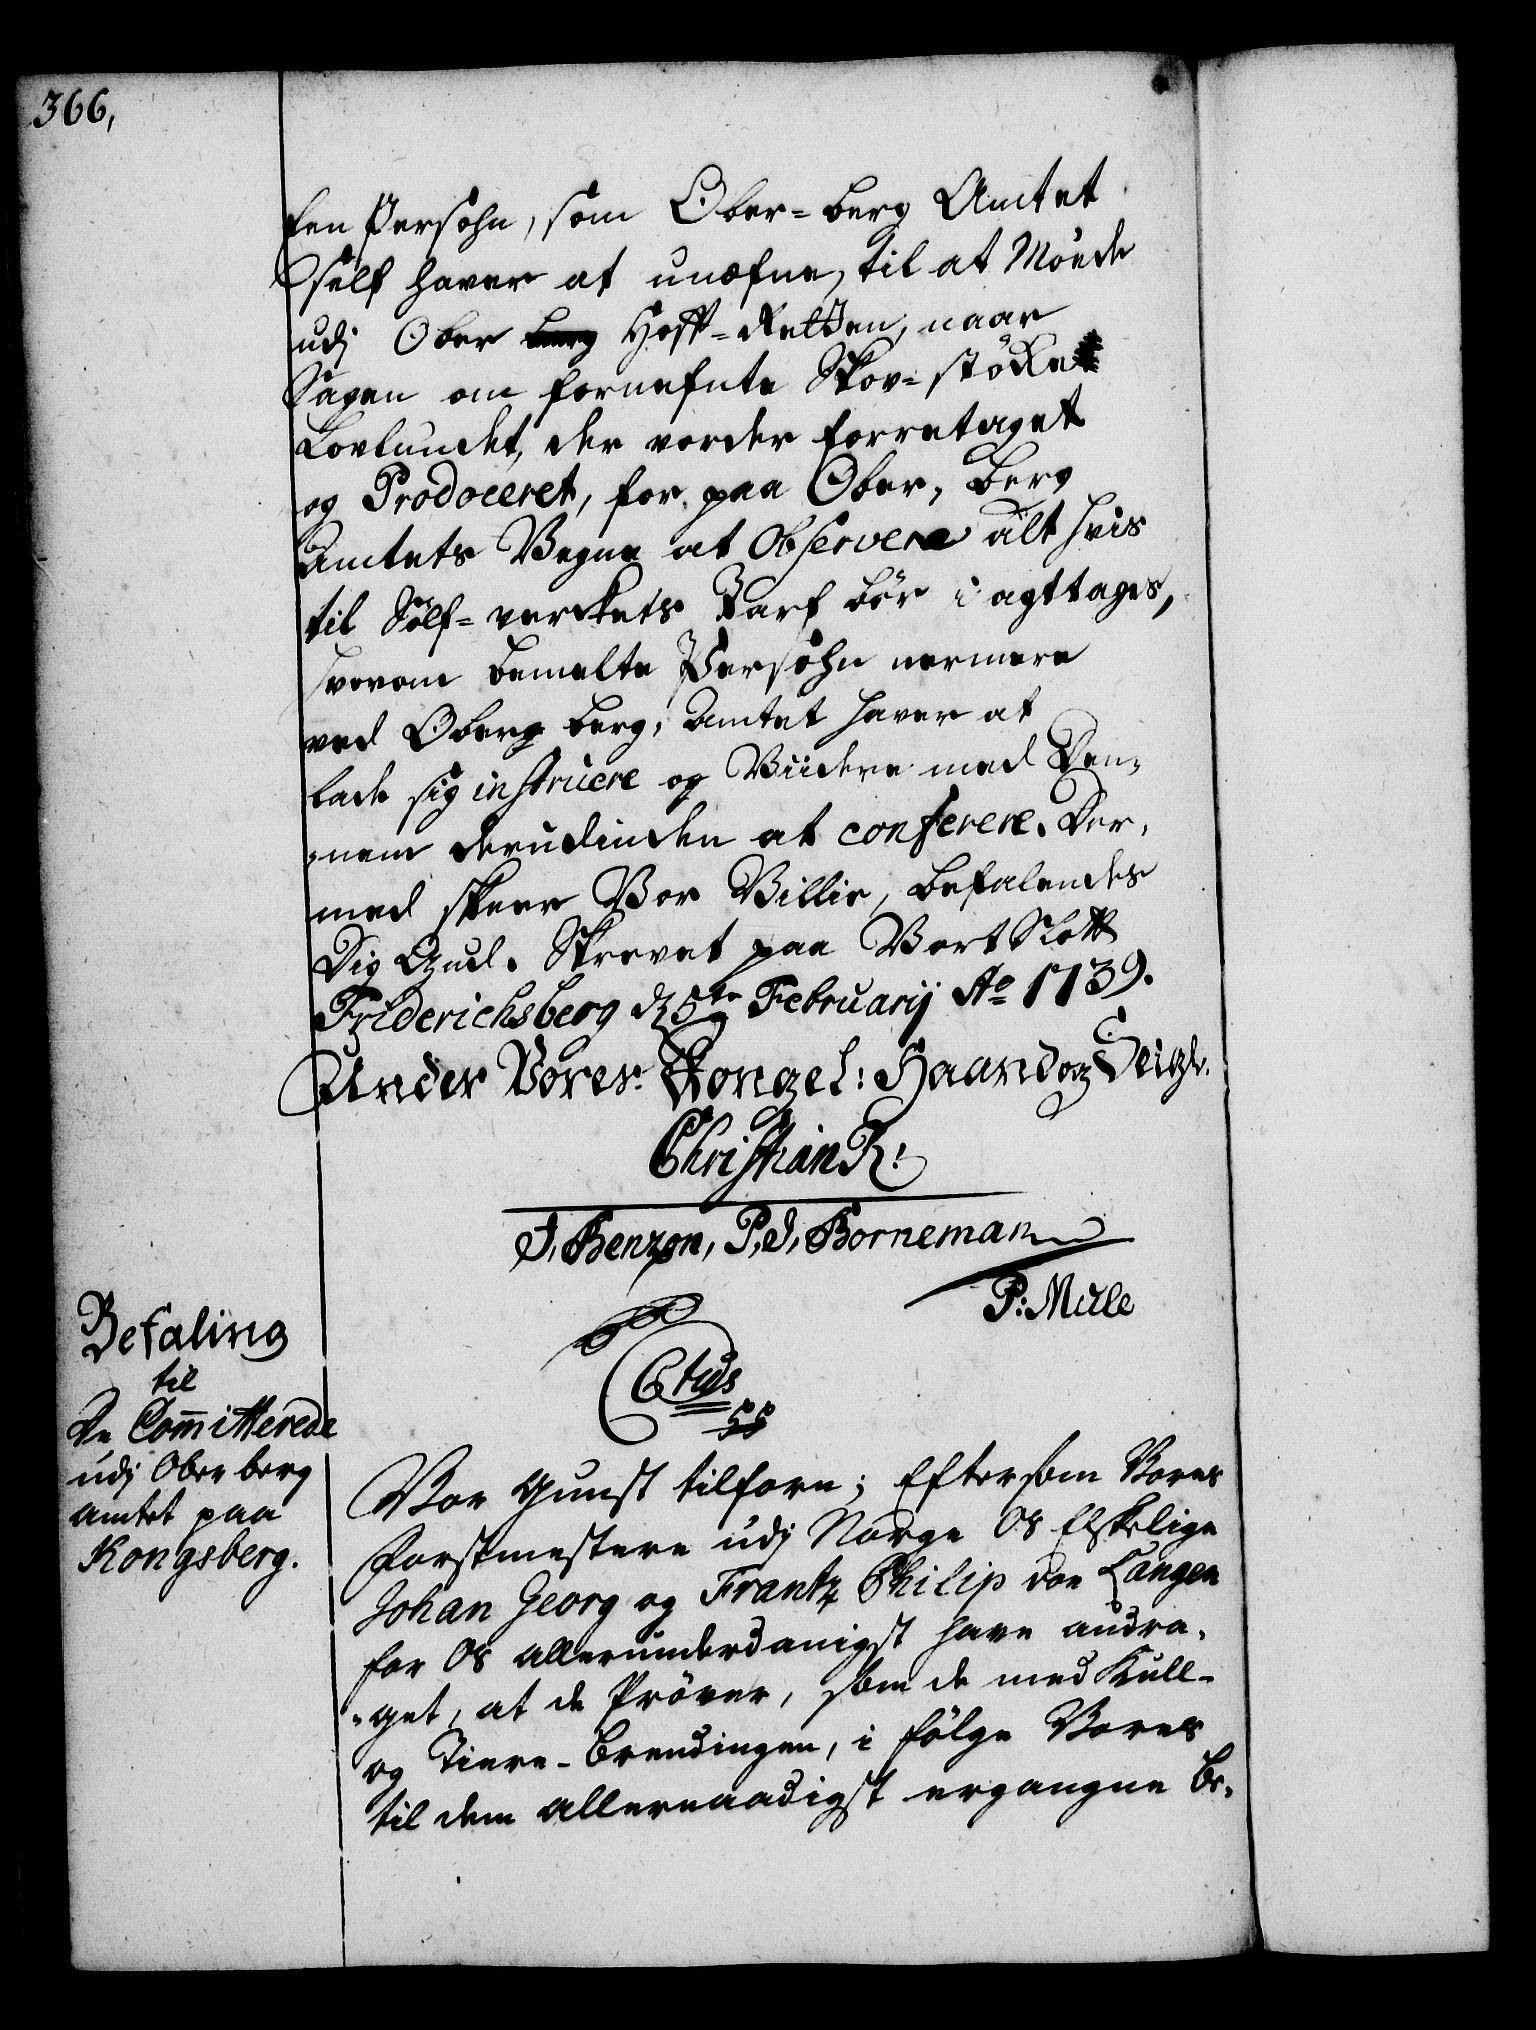 366,
den Persohn, som Ober-berg Amtet
self haver at unæfne, til at Møede
udj Ober berg Hoff-Retten, naar
Sagen om fornefnte Skov-støcke
Lovlundet, der vorder forretaget
og Prodoceret, for paa Ober-Berg
Amtets Vegne at Observere alt hvis
til Sølf-verckets Tarf bør i agttages,
hvorom bemelte Persohn nermere
ved Oberg berg-Amtet haver at
lade sig instruere og Viidere med Den-
-nem derudinden at conferere. Der-
med skeer Vor Villie, befalendes
Dig Gud. Skrevet paa Vort Slott
Friderichsberg d 5te Februarij Ao 1739.
Under Vores Kongel: Haand og Seigl.
Christian R:
J. Benzon, P. J. Borneman
P: Mule
Ctus
Befaling
til
De Com̅itterede
udj Ober berg
amtet paa
Kongsberg.
Vor Gunst tilforn; Eftersom Vores
Forstmestere udj Norge Os Elskelige
Johan Georg og Frantz Philip von Langen
for Os allerunderdanigst have andra-
-get, at de Prøver, som de med Kull-
og Tiere-brendingen, i følge Vores
til dem allernaadigst ergangne Be-